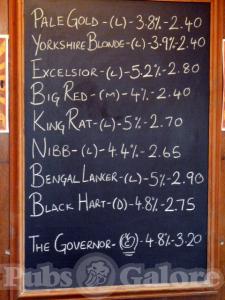 PALE GOLD-(L)-3.8%-2.40
YORKSHIRE BLONDE-(L)-3.9%-2.40
EXCELSIOR-(L)-5.2%-2.80
BIG RED-(M)-4%-2.40
KING RAT-(L)-5%-2.70
NIBB-(L)-4.4%-2.65
BENGAL LANCER-(L)-5%-2.90
BLACK HART-(D)-4.8%-2.75
THE GOVERNOR- -4.8%-3.20
Pubs Galore